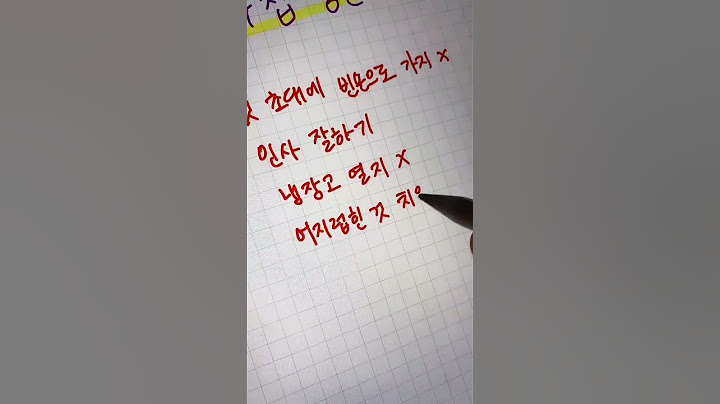 초대에 빈손으로 가지 x
인사 잘하기
냉장고 열지 x
어지럽힌 것